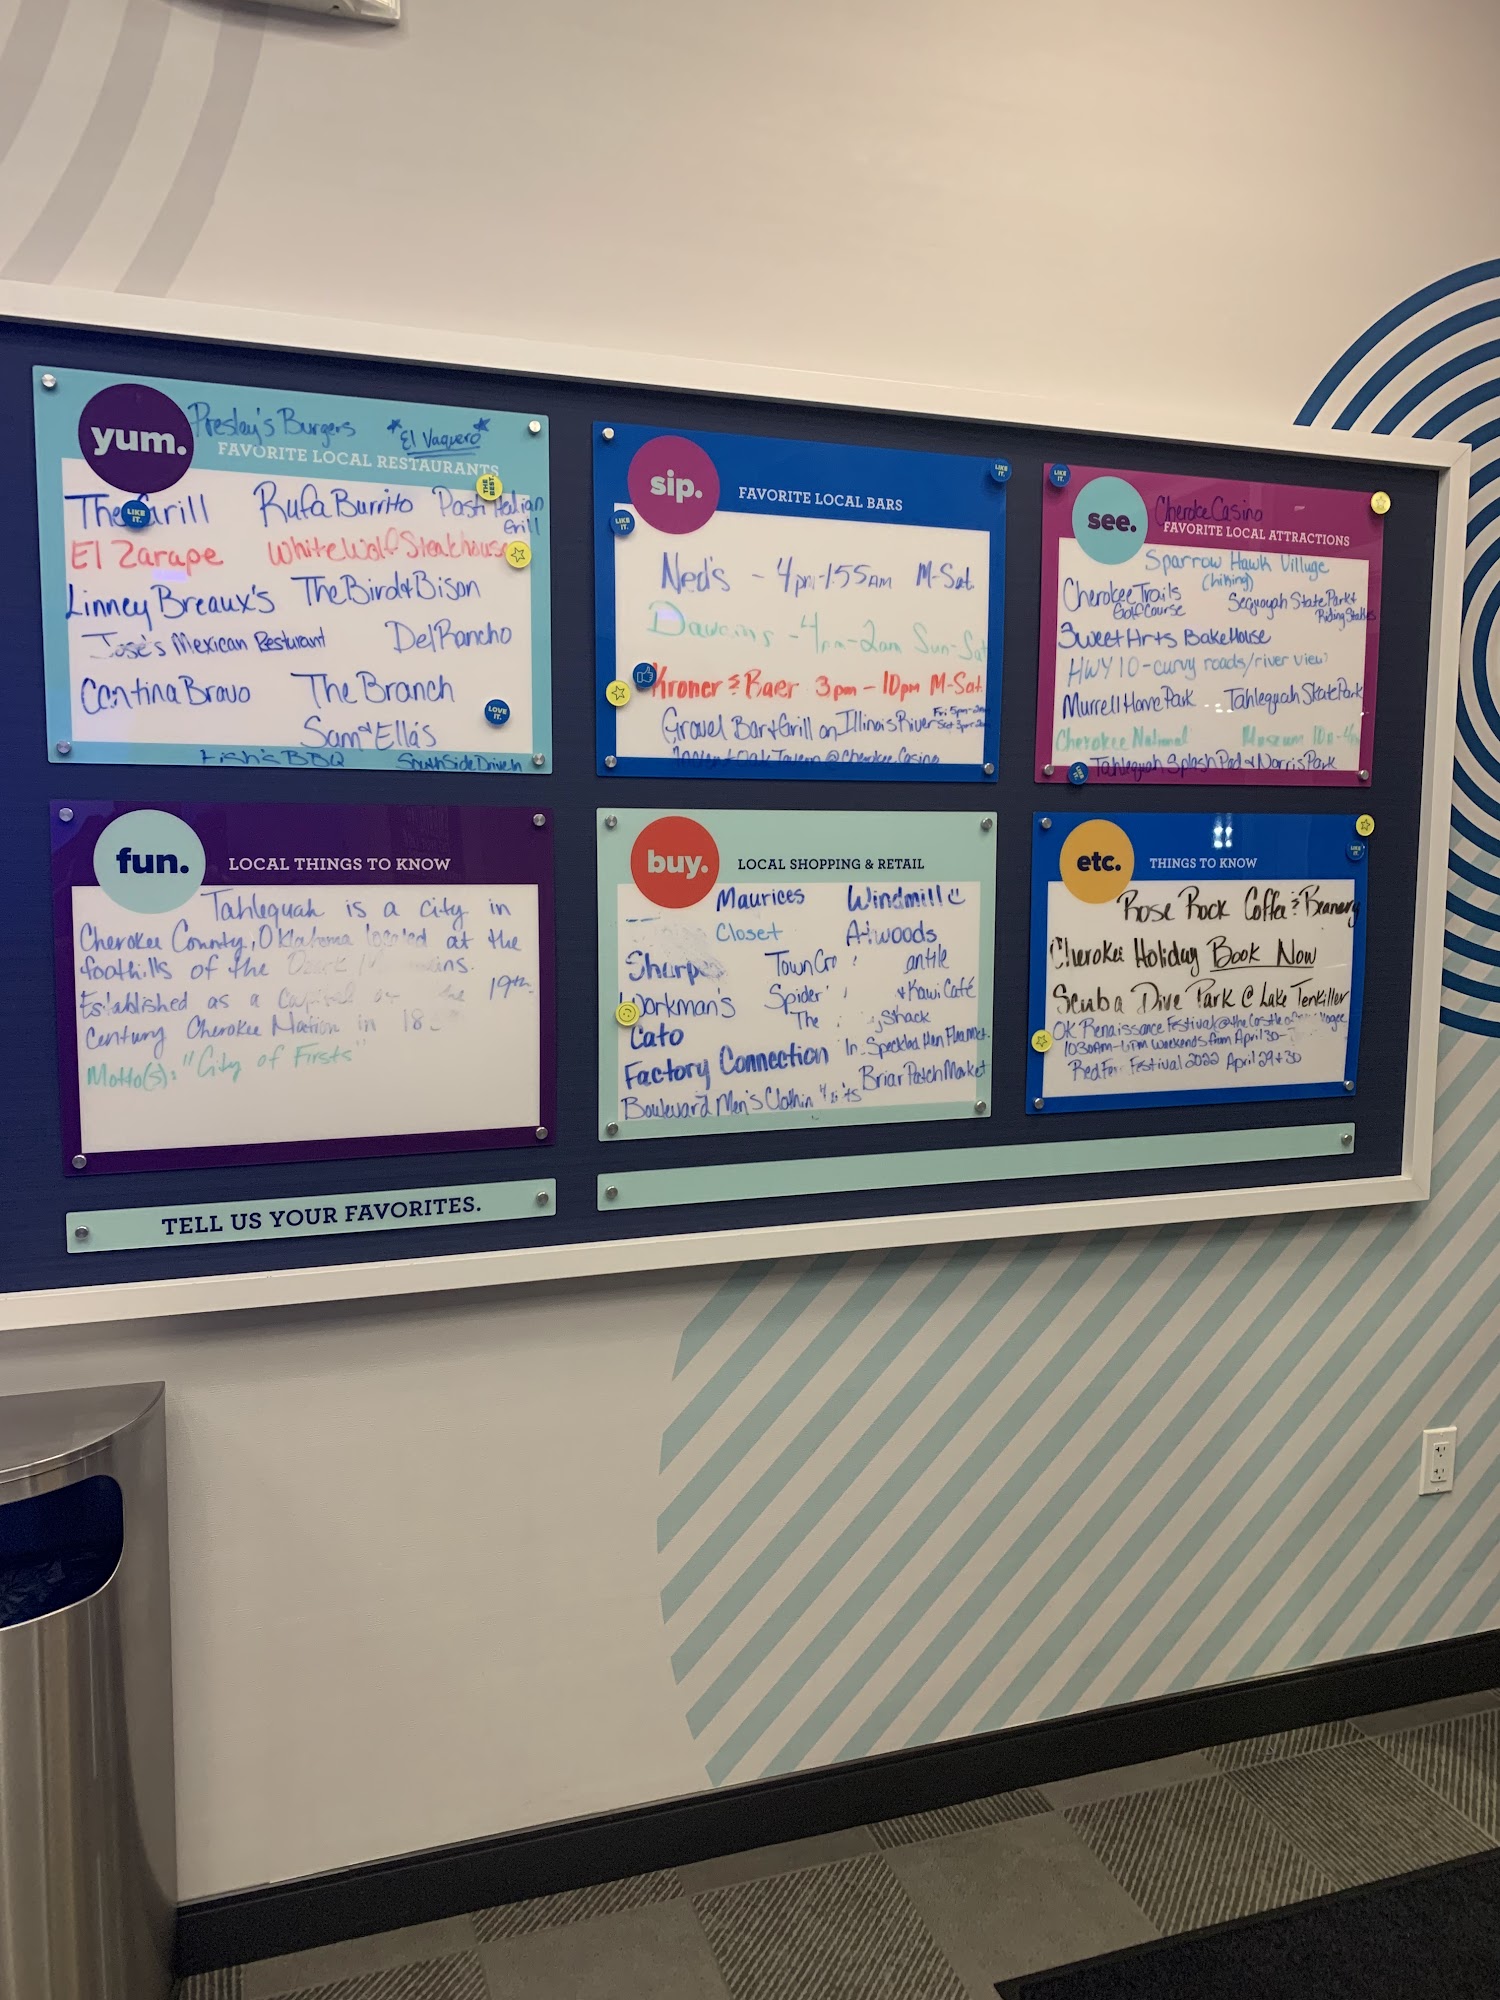 yum.
Presley's Burgers
*El Vaquero*
FAVORITE LOCAL RESTAURANTS
THE BEST.
The Grill
LIKE IT.
Rufa Burrito
Italian
Grill
El Zarape
White Wolf Steakhouse
Linney Breaux's
The Bird & Bison
José's Mexican Resturant
Del Rancho
Cantina Bravo
The Branch
LOVE IT.
Sam & Ella's
BBQ
South Side Drive In
sip.
FAVORITE LOCAL BARS
LIKE IT.
LIKE IT.
Ned's - 4pm-1:55am M-Sat.
- 4pm-2am Sun-Sat
Kroner & Baer 3pm - 10pm M-Sat.
Gravel Bar & Grill on Illinois River
Ancient Oak Tavern @ Cherokee Casino
LIKE IT.
see.
Cherokee Casino
FAVORITE LOCAL ATTRACTIONS
Sparrow Hawk Village
(hiking)
Cherokee Trails
Golf Course
Sequoyah State Park &
Riding Stables
Sweet Arts Bake House
HWY 10 - curvy roads/river view
Murrell Home Park
Tahlequah Skate Park
Cherokee National
Museum
Tahlequah Splash Pad & Norris Park
fun.
LOCAL THINGS TO KNOW
Tahlequah is a city in
Cherokee County, Oklahoma located at the
foothills of the
Established as a the 19th
Century Cherokee Nation in
Motto(s): "City of Firsts"
buy.
LOCAL SHOPPING & RETAIL
Maurices
Windmill
Closet
Atwoods
Workman's
Spider
Kawi Café
The
Shack
Cato
Speckled Hen Flea Mkt.
Factory Connection
Briar Patch Market
Boulevard Men's
etc.
THINGS TO KNOW
LIKE IT.
Rose Rock Coffee & Beanery
Cherokee Holiday Book Now
Scuba Dive Park @ Lake Tenkiller
OK Renaissance Festival @ the Castle of
10:30AM-6PM weekends from April 30-
Festival 2022 April 29 & 30
TELL US YOUR FAVORITES.